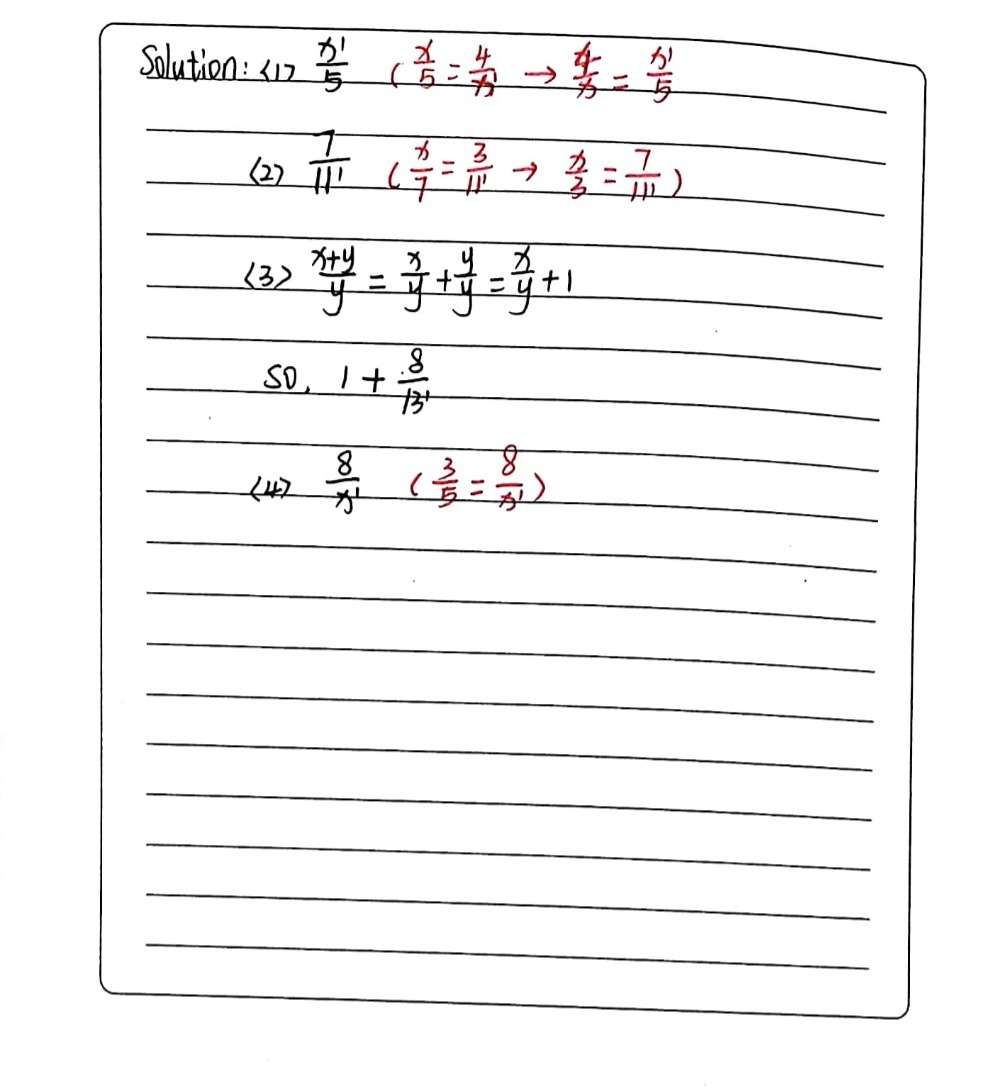 Solution: <1> x'/5 ( x/5 = 4/x' → 4/x = x'/5
<2> 7/11' ( x/7 = 3/11' → x/3 = 7/11' )
<3> x+y/y = x/y + y/y = x/y + 1
SO, 1 + 8/13'
<4> 8/x' ( 3/5 = 8/x' )